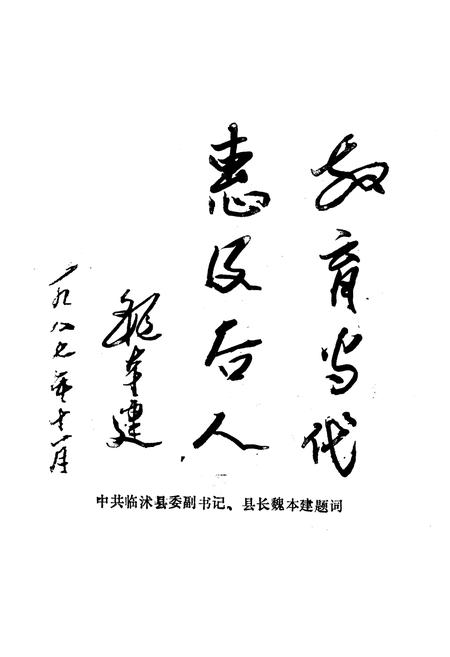 教育当代
惠及后人
魏本建
一九八七年十一月
中共临沭县委副书记、县长魏本建题词